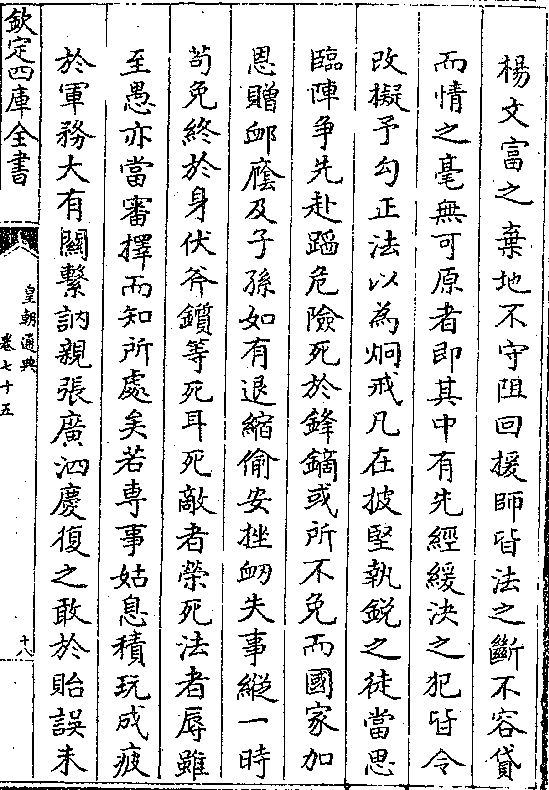 楊文富之棄地不守阻回援師皆法之斷不容貸
而情之毫無可原者即其中有先經緩決之犯皆令
改擬予勾正法以為炯戒凡在披堅執鋭之徒當思
臨陣爭先赴蹈危險死於鋒鏑或所不免而國家加
恩贈衈廕及子孫如有退縮偷安挫衂失事縱一時
苟免終於身伏斧鑕等死耳死敵者榮死法者辱雖
至愚亦當審擇而知所處矣若専事姑息積玩成疲
於軍務大有關繫訥親張廣泗慶復之敢於貽誤未
欽定四庫全書
皇朝通典
卷七十五
十八